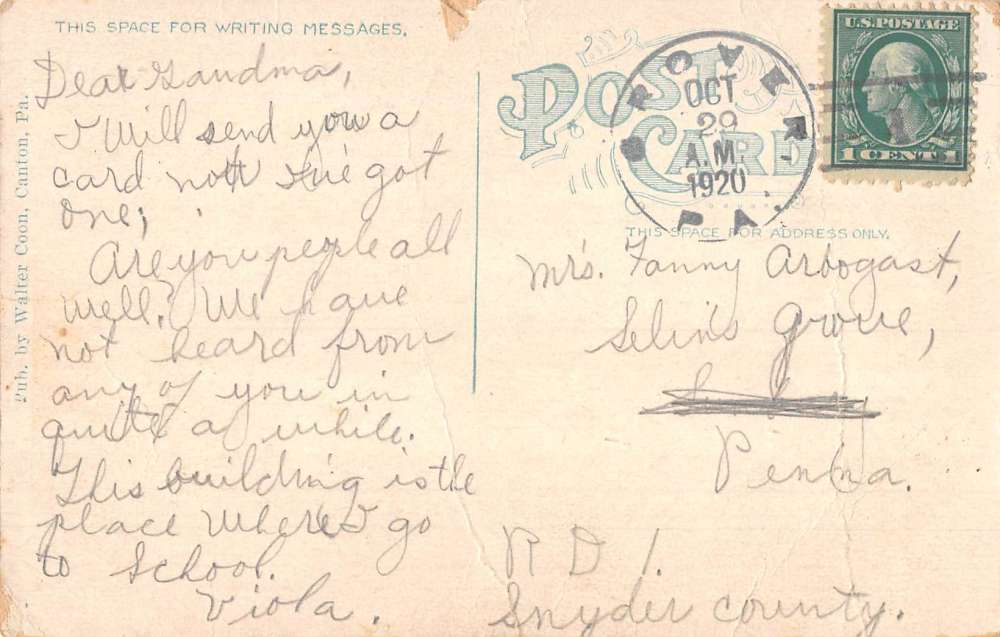 THIS SPACE FOR WRITING MESSAGES.
Dear Gandma,
I will send you a
card nott I've got
one;
Are you people all
well. We have
not heard from
any of you in
quite a while.
This building is the
place where I go
to School.
Viola.
Pub. by Walter Coon, Canton, Pa.
POST CARD
GROVER
OCT
29
A.M.
1920
PA.
U.S. POSTAGE
1 CENT 1
THIS SPACE FOR ADDRESS ONLY.
Mrs. Fanny Arbogast,
Selin's Grove,
Penna.
R D 1.
Snyder county.